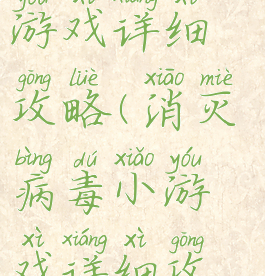 yóu xì xiáng xì
游戏详细
gōng lüè xiāo miè
攻略(消灭
bìng dú xiǎo yóu
病毒小游
xì xiáng xì gōng
戏详细攻